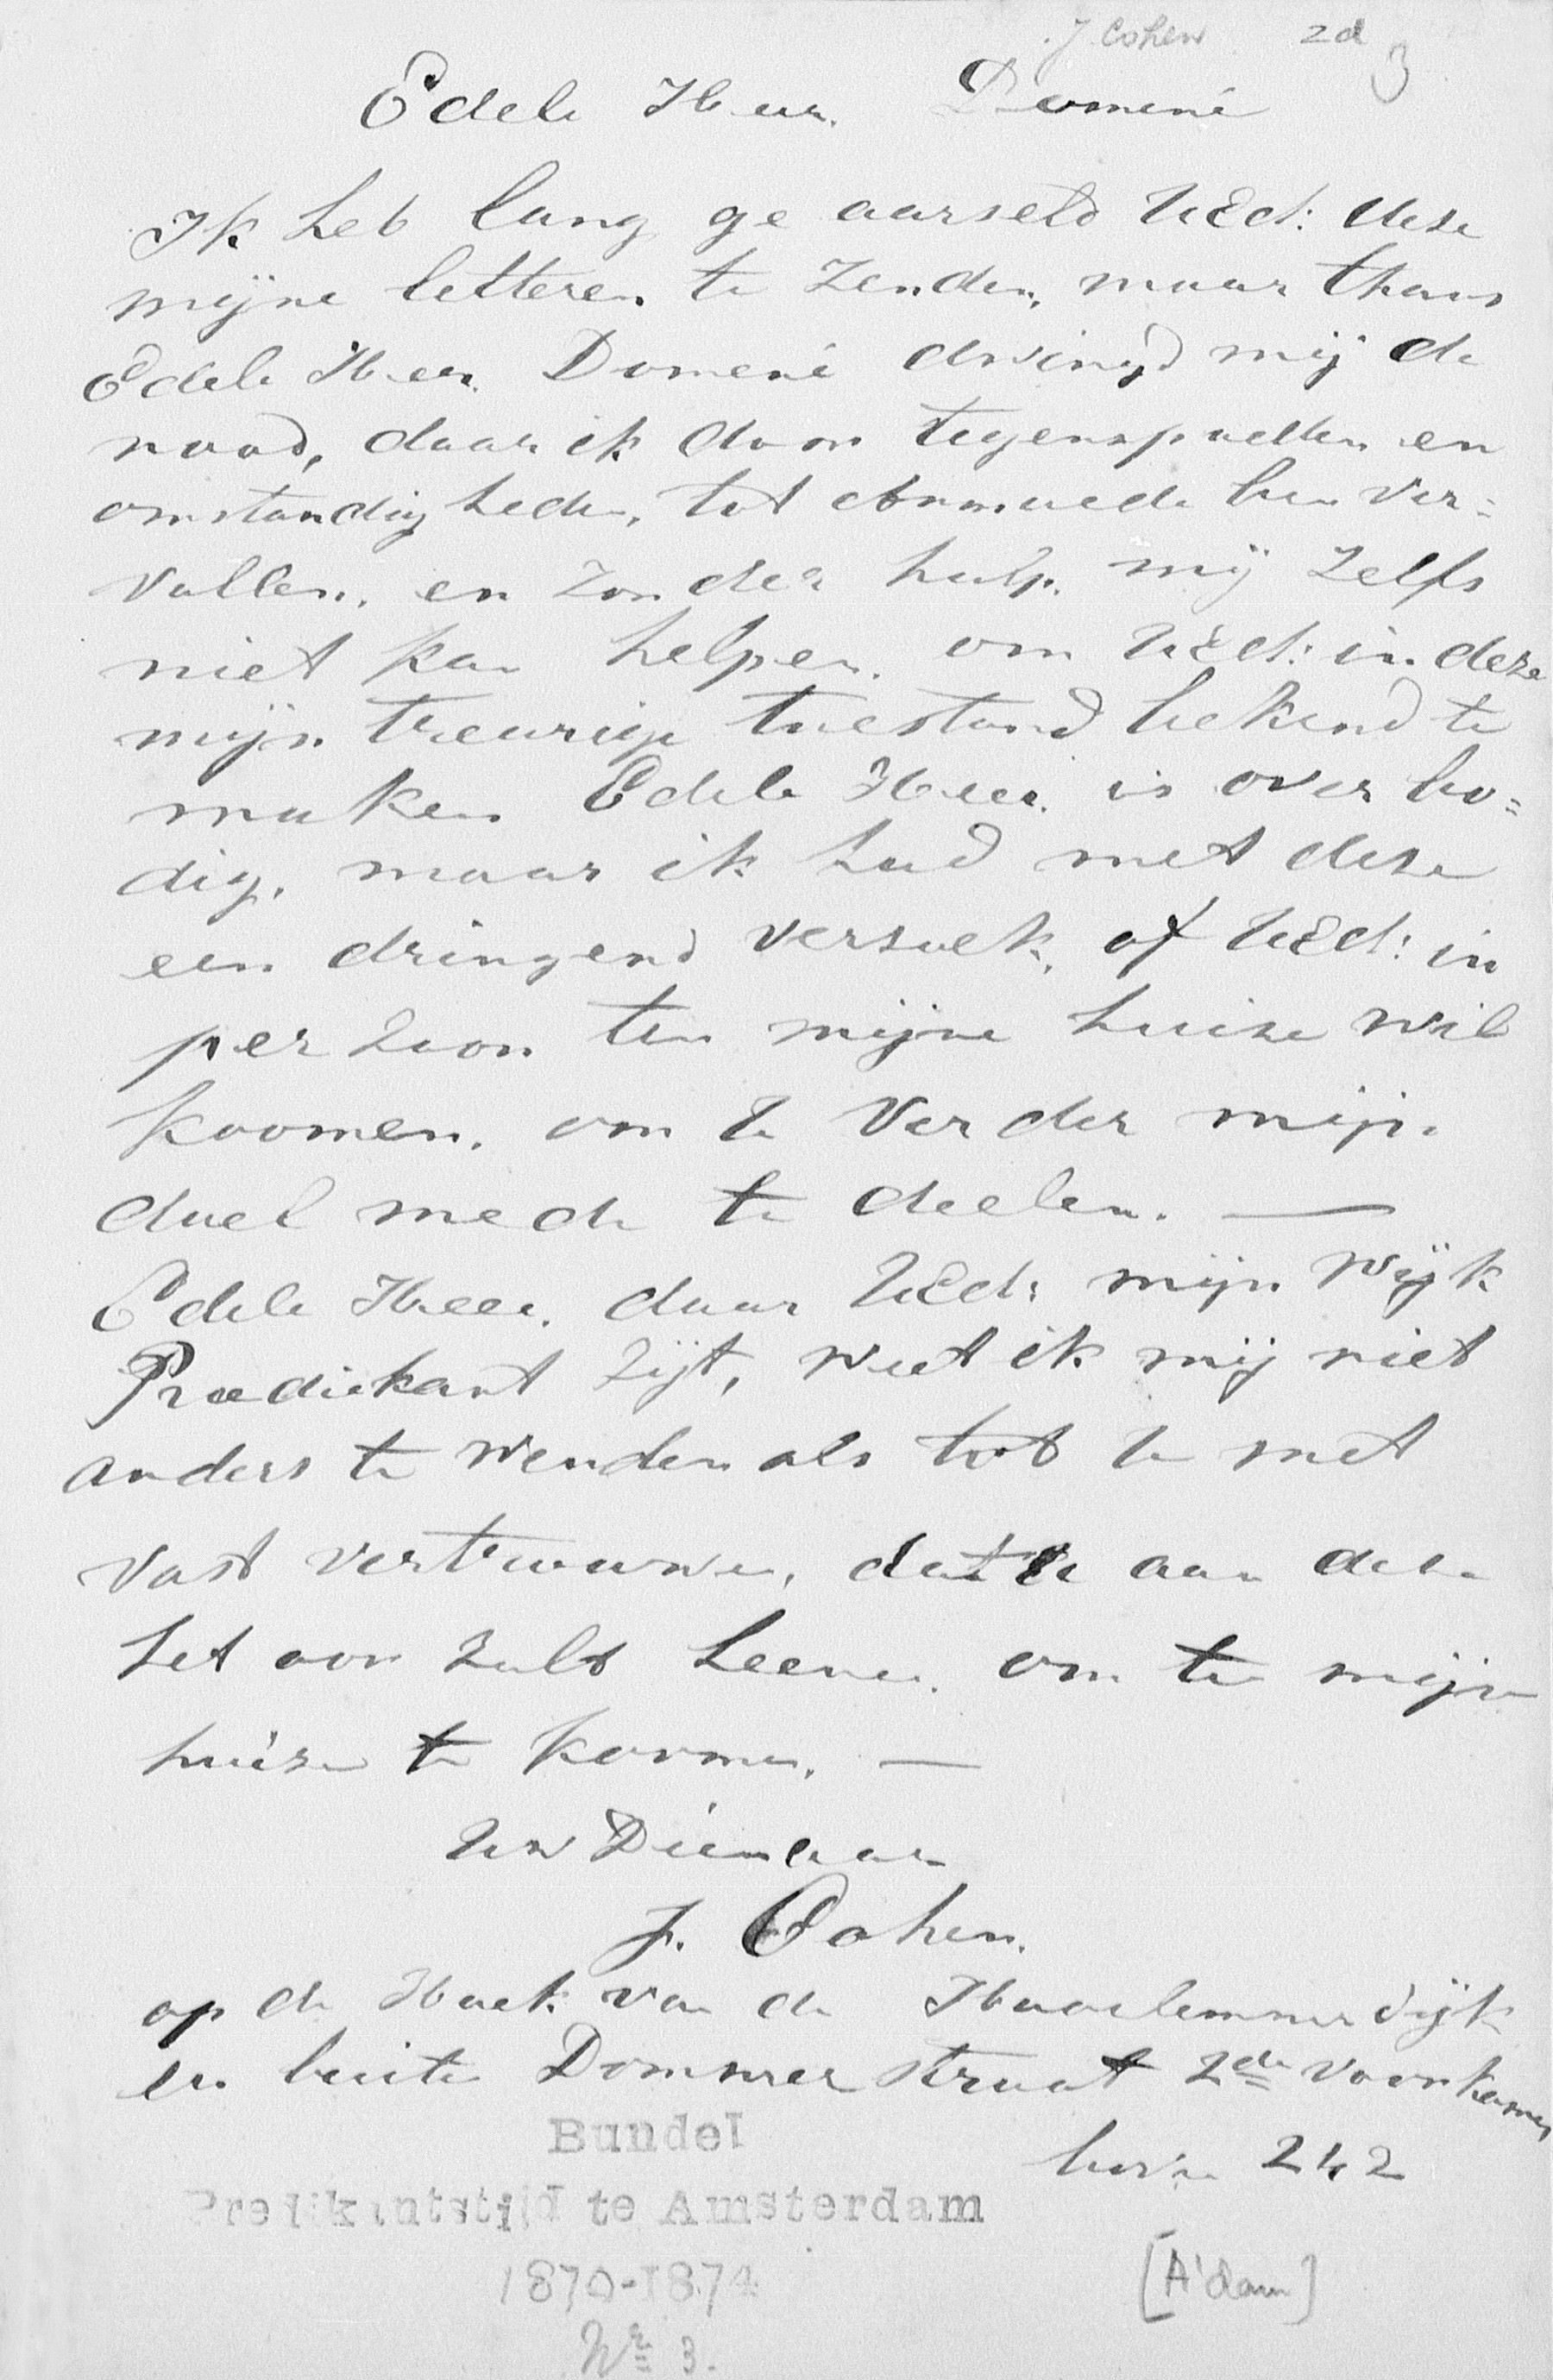 J Cohen 2d
3
Edele Heer. Domené
Ik heb lang ge aarseld UEd: dese
mijne letteren te zenden, maar thans
Edele Heer Domené dwingd mij de
nood, daar ik door tegenspoeden en
omstandigheden, tot armoede ben ver=
vallen. en zonder hulp. mij zelfs
niet kan helpen. om UEd: in deze
mijn treurige toestand bekend te
maken Edele Heer. is over bo=
dig. maar ik had met dese
een dringend versoek. of UEd: in
perzoon ten mijne huize wil
koomen. om U verder mijn
doel mede te deelen. —
Edele Heer. daar UEd: mijn wijk
Praedikant zijt, weet ik mij niet
anders te wenden als tot U met
vast vertrouwen, dat U aan dese
het oor zult leenen. om te mijn
huize te koomen. —
Uw Dienaar
J. Cohen.
op de Hoek van de Haarlemmer dijk
en buite Dommer straat 2de voorkamer
boven 242
Bundel
Predikantstijd te Amsterdam
1870-1874
[A'dam]
No 3.